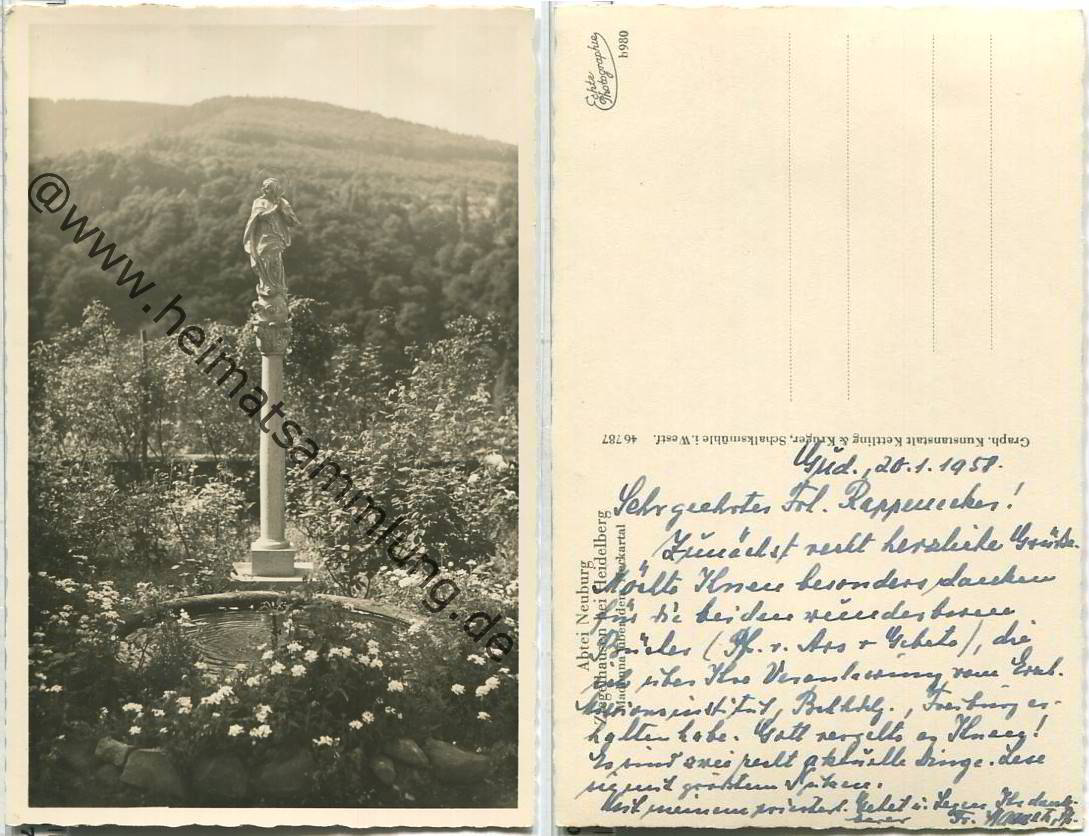 @www.heimatsammlung.de
Echte
Photographie
h980
Graph. Kunstanstalt Kettling & Krüger, Schalksmühle i. Westf. 46787
Abtei Neuburg
Ziegelhausen bei Heidelberg
Madonna über dem Neckartal
20.1.1958.
Sehr geehrtes Frl. Rappenecker!
Zunächst recht herzliche Grüße.
Möchte Ihnen besonders danken
für die beiden wunderbaren
Bücher (Pf. v. Ars u Gebete), die
ich über Ihre Veranlassung vom Erzb.
Freiburg er-
halten habe. Gott vergelte es Ihnen!
Es sind zwei recht aktuelle Dinge. Lese
sie mit größtem Nutzen.
Mit meinem priesterl. Gebet u. Segen Ihr dank-
barer Fr.